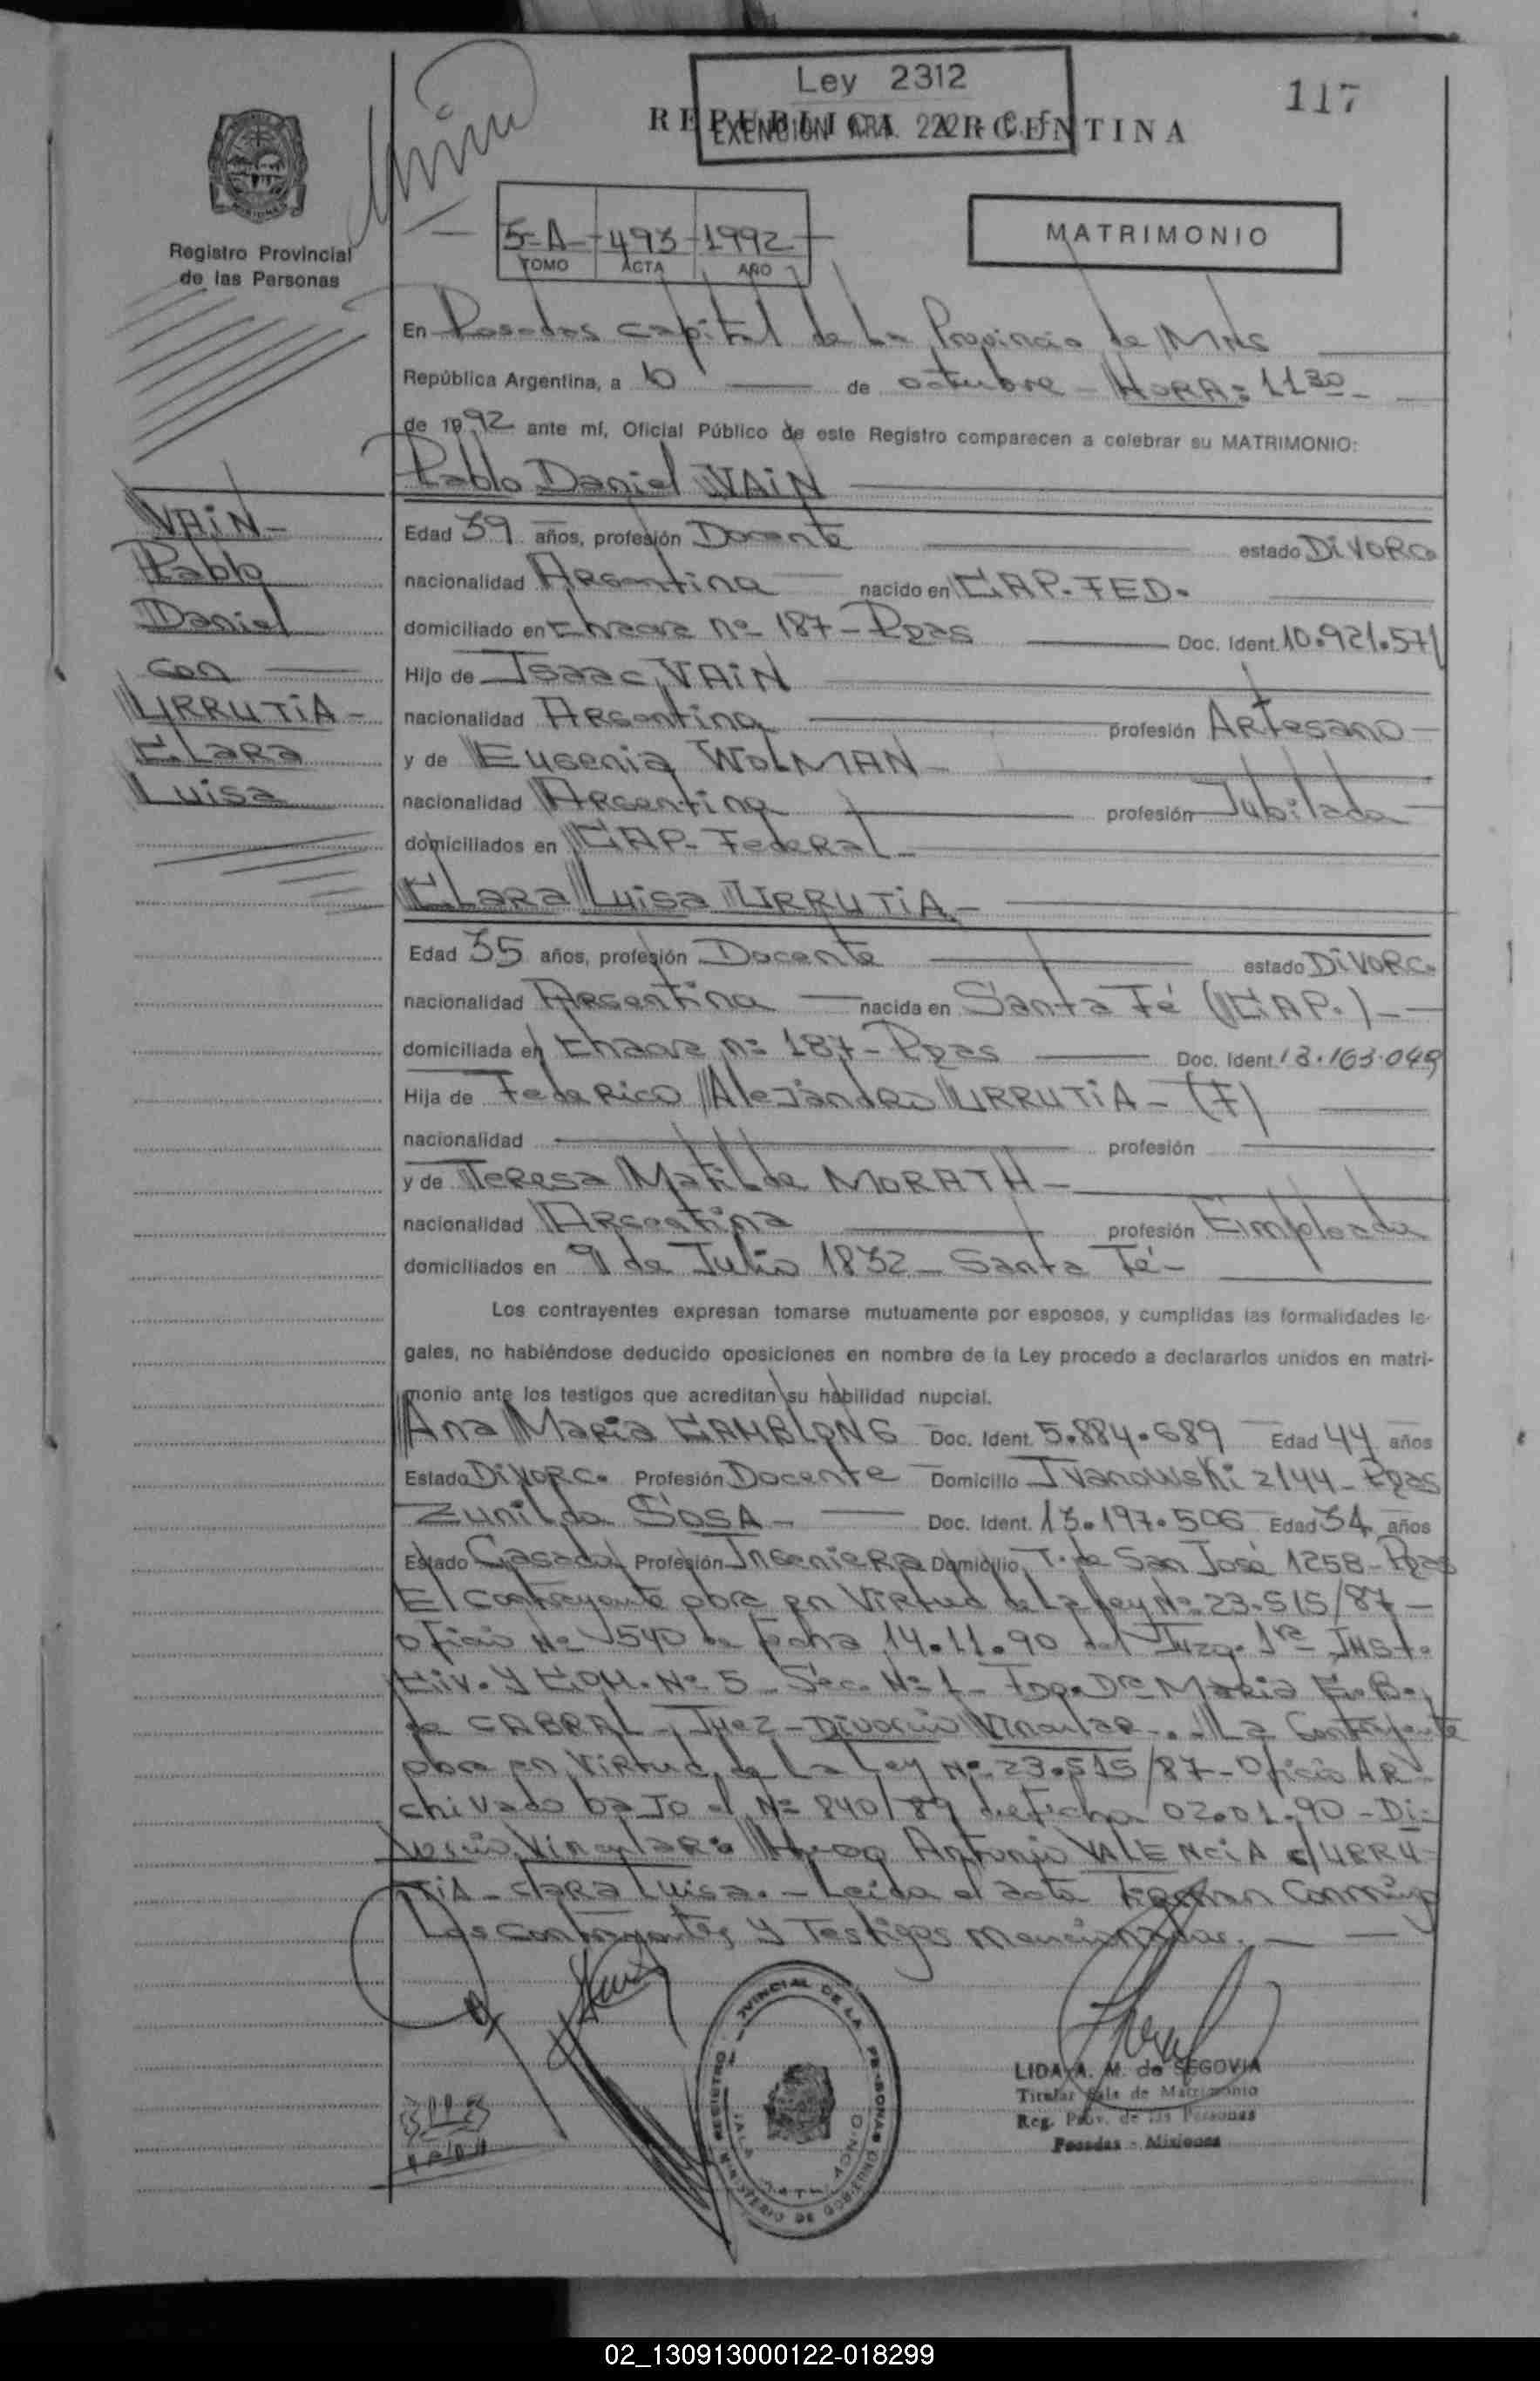 Ley 2312
EXENCION ART. 222
REPUBLICA ARGENTINA
117
Registro Provincial
de las Personas
5-A 493 1992
TOMO ACTA AÑO
MATRIMONIO
En Posadas Capital de La Provincia de Mnes
República Argentina, a de octubre - HORA: 11 30
de 1992 ante mí, Oficial Público de este Registro comparecen a celebrar su MATRIMONIO:
Pablo Daniel VAIN
VAIN-
Pablo
Daniel
con
URRUTIA-
CLARA
Luisa
Edad 39 años, profesión Docente estado DIVORC
nacionalidad Argentina nacido en CAP. FED.
domiciliado en Chacra nº 187 - Pdas Doc. Ident. 10.921.571
Hijo de Isaac VAIN
nacionalidad Argentina profesión Artesano
y de Eugenia WOLMAN
nacionalidad Argentina profesión Jubilada
domiciliados en CAP. Federal
CLARA Luisa URRUTIA-
Edad 35 años, profesión Docente estado DIVORC.
nacionalidad Argentina nacida en Santa Fé (CAP.)
domiciliada en Chacra nº 187 - Pdas Doc. Ident. 13.163.049
Hija de Federico Alejandro URRUTIA - (F)
nacionalidad profesión
y de Teresa Matilde MORATH
nacionalidad Argentina profesión Empleada
domiciliados en 9 de Julio 1832 - Santa Fé -
Los contrayentes expresan tomarse mutuamente por esposos, y cumplidas las formalidades le-
gales, no habiéndose deducido oposiciones en nombre de la Ley procedo a declararlos unidos en matri-
monio ante los testigos que acreditan su habilidad nupcial.
Ana Maria CAMBLONG Doc. Ident. 5.884.689 Edad 44 años
Estado DIVORC. Profesión Docente Domicilio Ivanowski 2144 - Pdas
Zunilda SOSA - Doc. Ident. 13.197.506 Edad 34 años
Estado Casada Profesión Ingeniera Domicilio T. de San José 1258 - Pdas
El Contrayente obra en Virtud de La Ley Nº 23.515/87 -
Oficio Nº 1540 de fecha 14.11.90 del Juzg. 1ra Inst.
Civ. y COM. Nº 5 - Sec. Nº 1 - Dra Maria E. B.
de CABRAL - Juez - Divorcio Vincular. - La Contrayente
obra en Virtud de La Ley Nº 23.515/87 - Oficio AR-
chivado bajo el Nº 840/89 de fecha 02.01.90 - Di-
vorcio Vincular: Hugo Antonio VALENCIA c/ URRU-
TIA - Clara Luisa. - Leida el acta Firman Conmigo
Los Contrayentes y Testigos mencionados.
LIDA A. M. de SEGOVIA
Titular Sala de Matrimonio
Reg. Prov. de las Personas
Posadas - Misiones
02_130913000122-018299